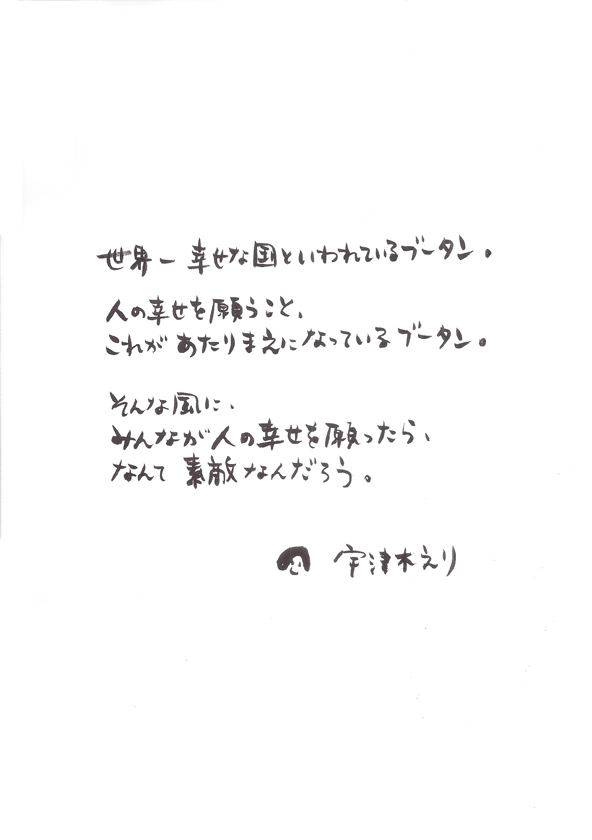 世界一幸せな国といわれているブータン。
人の幸せを願うこと、
これがあたりまえになっているブータン。
そんな風に、
みんなが人の幸せを願ったら、
なんて素敵なんだろう。
宇津木えり